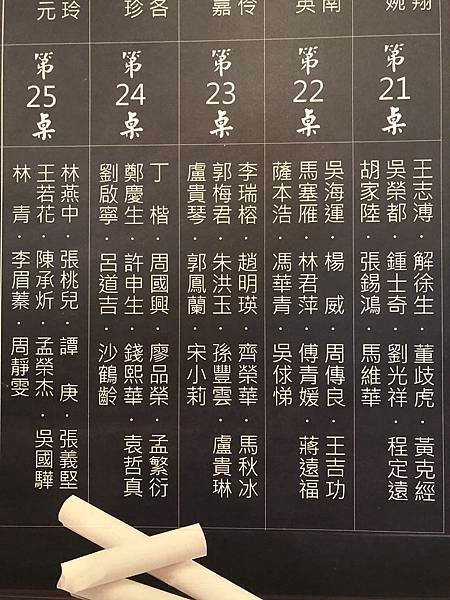 翔
婉
南
英
伶
嘉
珍
玲
元
第21桌
王志溥·解徐生·董歧虎·黃克經
吳榮都·鍾士奇·劉光祥·程定遠
胡家陸·張錫鴻·馬維華
第22桌
吳海運·楊 威·周傳良·王吉功
馬塞雁·林君萍·傅青媛·蔣遠福
薩本浩·馮華青·吳俅悌
第23桌
李瑞榕·趙明瑛·齊榮華·馬秋冰
郭梅君·朱洪玉·孫豐雲·盧貴琳
盧貴琴·郭鳳蘭·宋小莉
第24桌
丁 楷·周國興·廖品榮·孟繁衍
鄭慶生·許申生·錢熙華·袁哲真
劉啟寧·呂道吉·沙鶴齡
第25桌
林燕中·張桃兒·譚 庚·張義堅
王若花·陳承炘·孟榮杰·吳國驊
林 青·李眉蓁·周靜雯